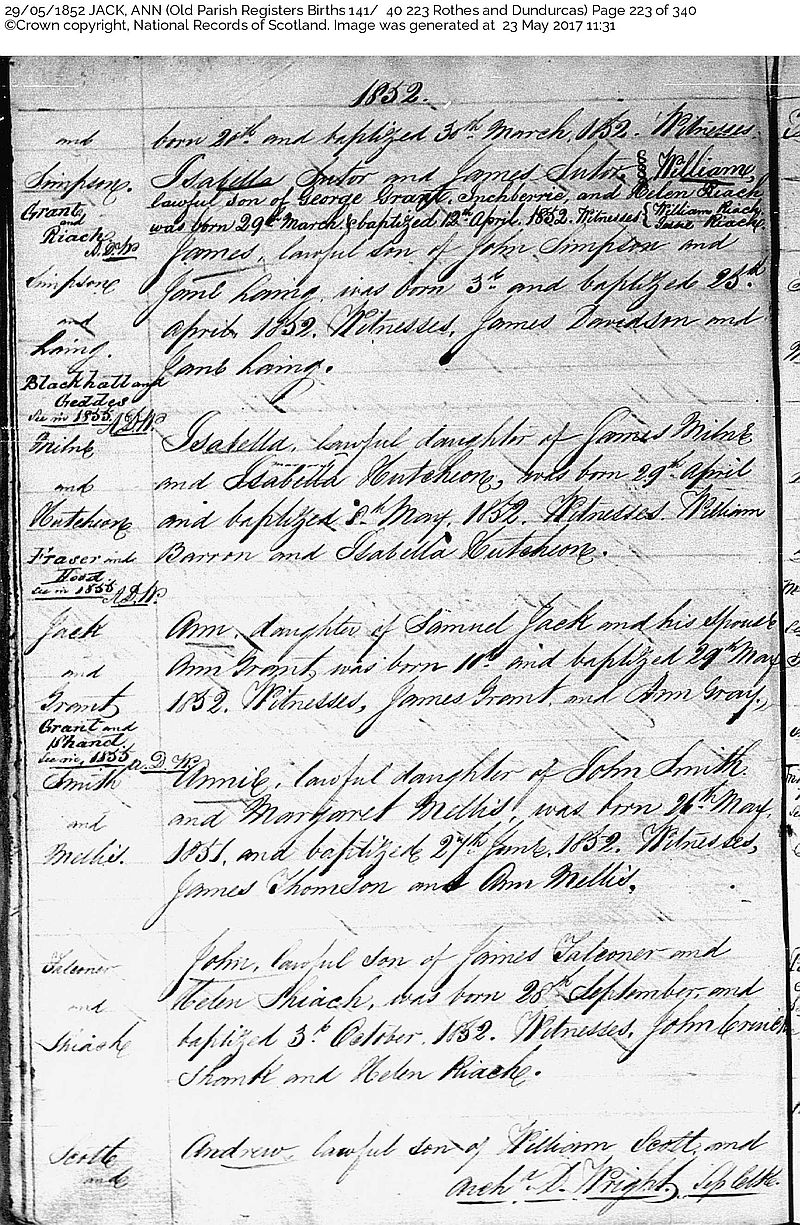 29/05/1852 JACK, ANN (Old Parish Registers Births 141/ 40 223 Rothes and Dundurcas) Page 223 of 340
©Crown copyright, National Records of Scotland. Image was generated at 23 May 2017 11:31
1852.
and born 20th and baptized 30th March, 1852. Witnesses
Simpson. Isabella Sutor and James Sutor. William,
Grant lawful son of George Grant, Inchberrie, and Helen Riach
and was born 29th March, & baptized 12th April, 1852. Witnesses William Riach.
Riach Jane Riach.
A.D.W.
James, lawful son of John Simpson and
Simpson Jane Laing, was born 3d and baptized 25th
and April, 1852. Witnesses, James Davidson and
Laing. Jane Laing.
Blackhall and
Geddes
See in 1855 A.D.W.
Milne Isabella, lawful daughter of James Milne
and and Isabella Hutcheon, was born 29th April
Hutcheon and baptized May, 1852. Witnesses. William
Fraser and Barron and Isabella Hutcheon.
Hood
See in 1855 A.D.W.
Jack Ann, daughter of Samuel Jack and his spouse
and Ann Grant, was born and baptized 29th May
Grant 1852. Witnesses, James Grant, and Ann Gray.
Grant and
Shand.
See in, 1855 A.D.W.
Smith Annie, lawful daughter of John Smith
and and Margaret Mellis, was born 26th May,
Mellis. 1851, and baptized 27th June, 1852. Witnesses,
James Thomson and Ann Mellis.
Falconer John, lawful son of James Falconer and
and Helen Shiach, was born 28th September, and
Shiach baptized 3d October, 1852. Witnesses, John
and Helen Riach.
Scott Andrew, lawful son of William Scott, and
and
Archd. D. Wright, Sess Clk.